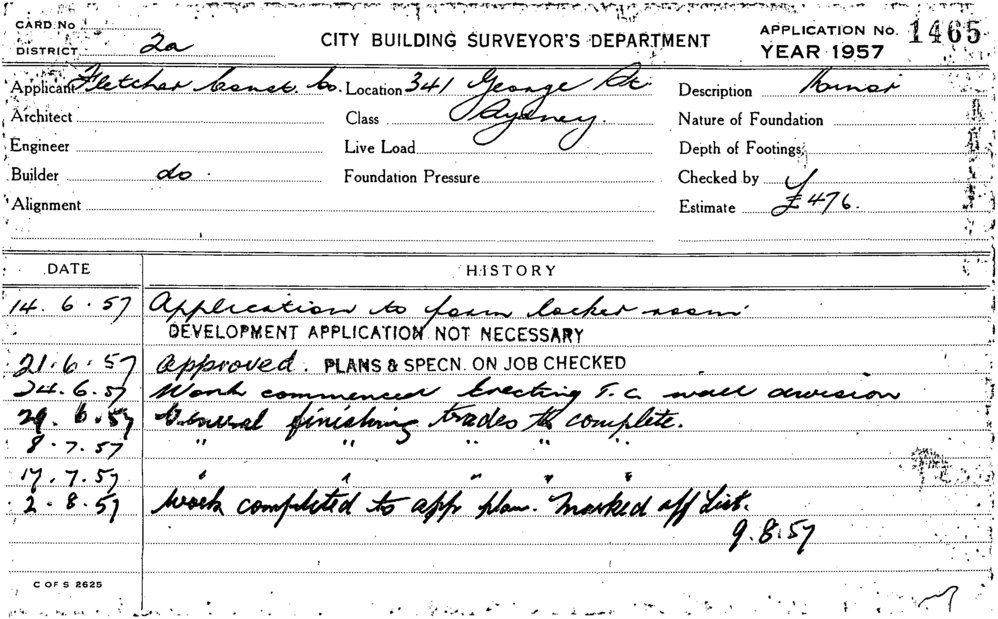 CARD No
DISTRICT 2a
CITY BUILDING SURVEYOR'S DEPARTMENT
APPLICATION No. 1465
YEAR 1957
Applicant Fletcher Const. Co. Location 341 George St. Description Minor
Architect Class Sydney. Nature of Foundation
Engineer Live Load Depth of Footings
Builder do. Foundation Pressure Checked by
Alignment Estimate £476.
DATE HISTORY
14.6.57 Application to form locker room
DEVELOPMENT APPLICATION NOT NECESSARY
21.6.57 Approved. PLANS & SPECN. ON JOB CHECKED
24.6.57 Work commenced Erecting T.C. wall division
29.6.57 General finishing trades to complete.
8.7.57 " " " " "
17.7.57 " " " " "
2.8.57 Work completed to app plan. Marked off List.
9.8.57
C OF S 2625